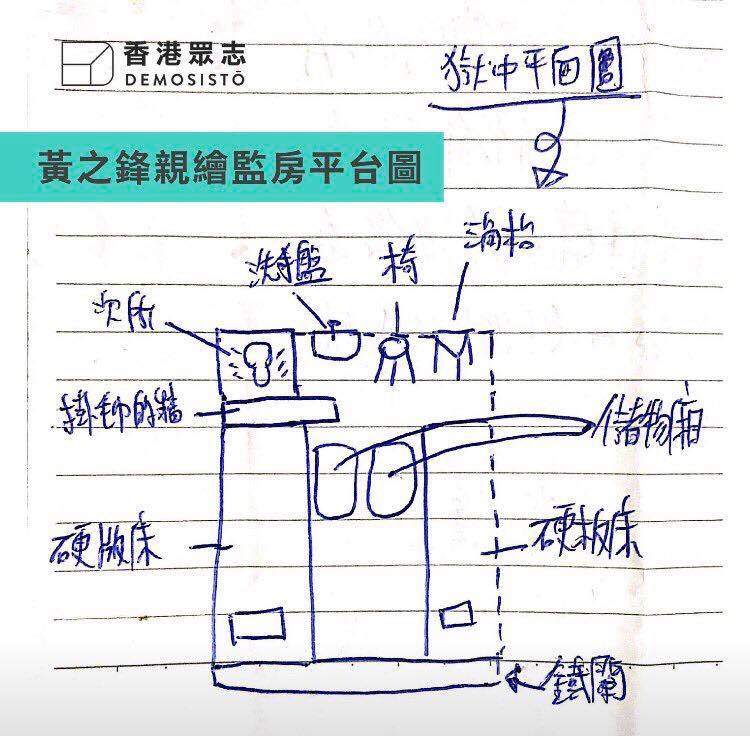 香港眾志
DEMOSISTŌ
獄中平面圖
黃之鋒親繪監房平台圖
洗手盤
椅
廁所
掛毛巾的牆
儲物箱
硬版床
硬板床
鐵闌